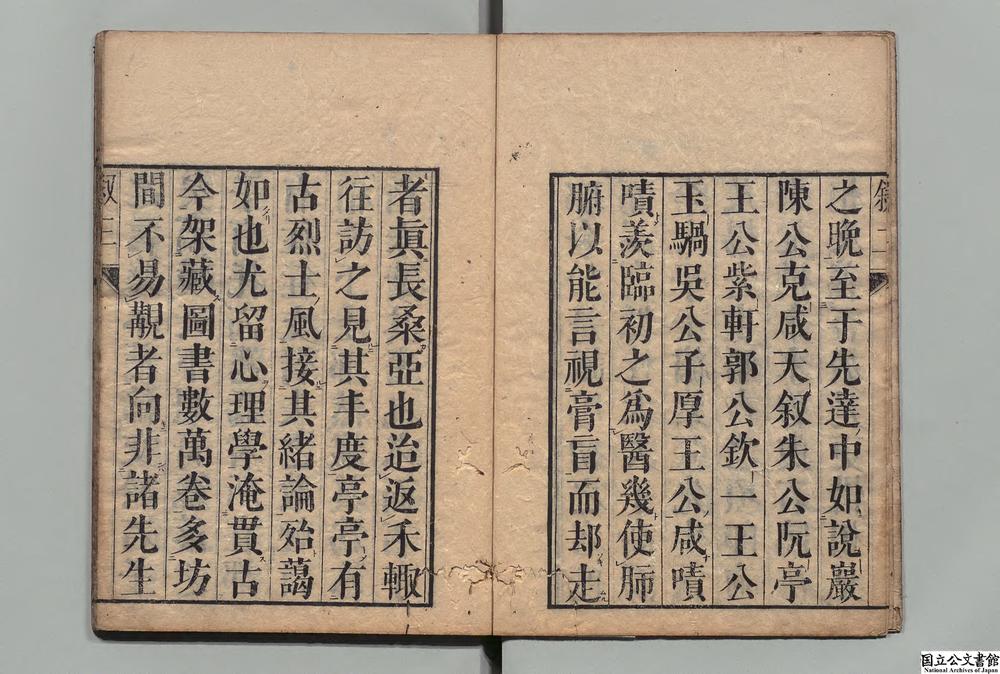 叙 二
之晩至于先達中如說巖
陳公克咸天叙朱公阮亭
王公紫軒郭公欽一王公
玉騧吳公子厚王公咸嘖
嘖羨臨初之爲醫幾使肺
腑以能言視膏肓而却走
者眞長桑亞也迨返禾輙
往訪之見其丰度亭亭有
古烈士風接其緒論殆藹
如也尤留心理學淹貫古
今架藏圖書數萬卷多坊
間不易覯者向非諸先生
叙 三
国立公文書館
National Archives of Japan